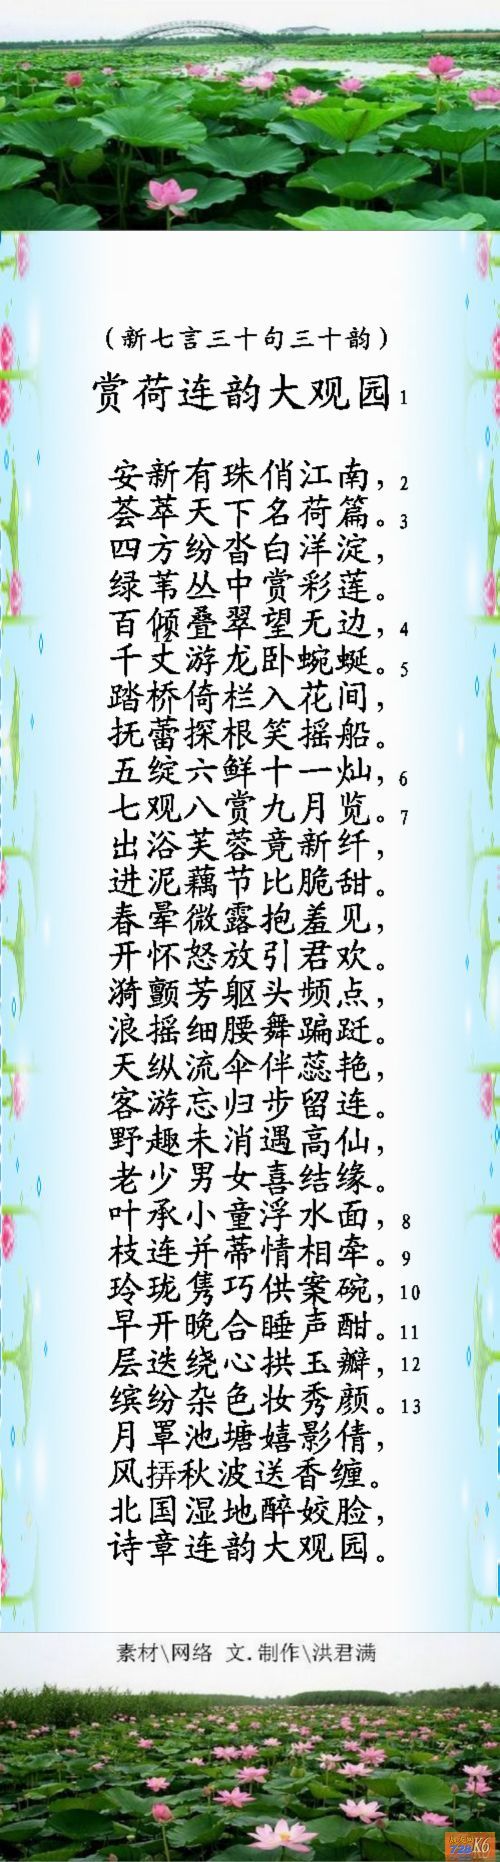 （新七言三十句三十韵）
赏荷连韵大观园1
安新有珠俏江南，2
荟萃天下名荷篇。3
四方纷沓白洋淀，
绿苇丛中赏彩莲。
百倾叠翠望无边，4
12
千丈游龙卧蜿蜒。5
踏桥倚栏入花间，
抚蕾探根笑摇船。
五绽六鲜十一灿，6
七观八赏九月览。7
出浴芙蓉竟新纤，
进泥藕节比脆甜。
春晕微露抱羞见，
开怀怒放引君欢。
漪颤芳躯头频点，
浪摇细腰舞蹁跹。
天纵流伞伴蕊艳，
客游忘归步留连。
野趣未消遇高仙，
老少男女喜结缘。
叶承小童浮水面，8
枝连并蒂情相牵。9
玲珑隽巧供案碗，10
早开晚合睡声酣。11
层迭绕心拱玉瓣，12
缤纷杂色妆秀颜。13
月罩池塘嬉影倩，
风挵秋波送香缠。
北国湿地醉姣脸，
诗章连韵大观园。
素材\网络 文.制作\洪君满